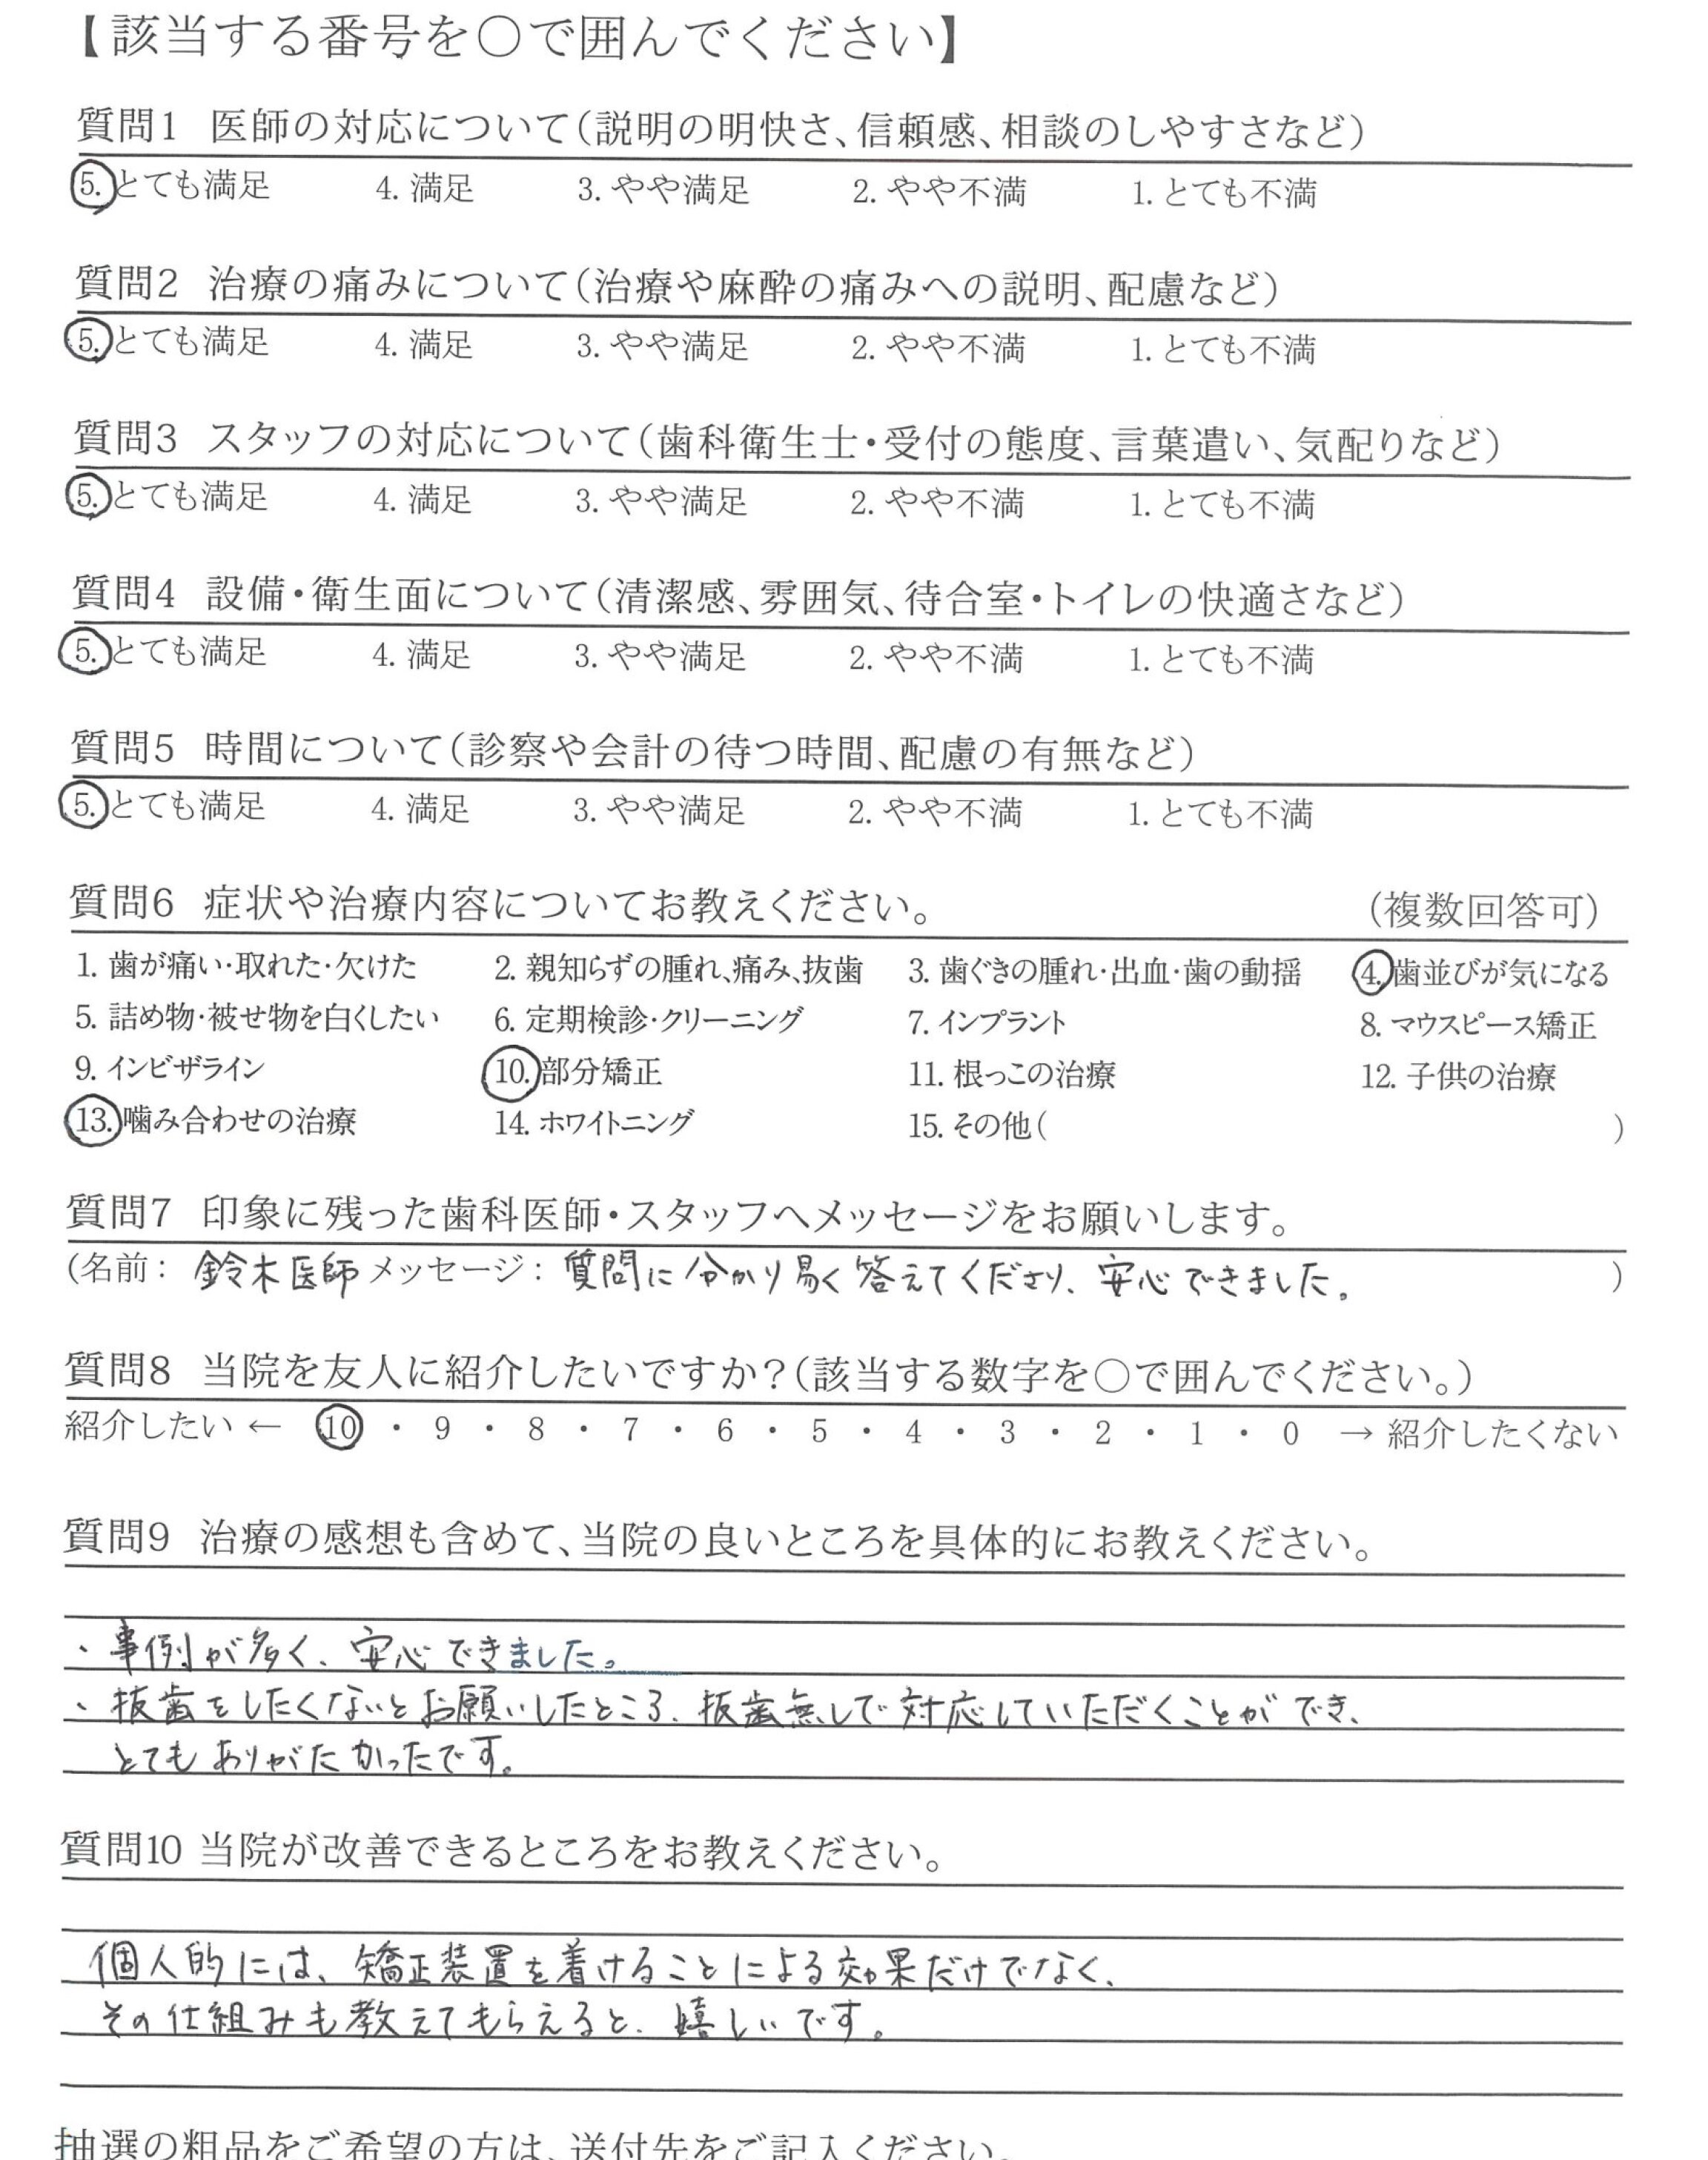 【該当する番号を〇で囲んでください】
質問1 医師の対応について(説明の明快さ、信頼感、相談のしやすさなど)
5. とても満足 4. 満足 3. やや満足 2. やや不満 1. とても不満
質問2 治療の痛みについて(治療や麻酔の痛みへの説明、配慮など)
5. とても満足 4. 満足 3. やや満足 2. やや不満 1. とても不満
質問3 スタッフの対応について(歯科衛生士・受付の態度、言葉遣い、気配りなど)
5. とても満足 4. 満足 3. やや満足 2. やや不満 1. とても不満
質問4 設備・衛生面について(清潔感、雰囲気、待合室・トイレの快適さなど)
5. とても満足 4. 満足 3. やや満足 2. やや不満 1. とても不満
質問5 時間について(診察や会計の待つ時間、配慮の有無など)
5. とても満足 4. 満足 3. やや満足 2. やや不満 1. とても不満
質問6 症状や治療内容についてお教えください。 (複数回答可)
1. 歯が痛い・取れた・欠けた 2. 親知らずの腫れ、痛み、抜歯 3. 歯ぐきの腫れ・出血・歯の動揺 4. 歯並びが気になる
5. 詰め物・被せ物を白くしたい 6. 定期検診・クリーニング 7. インプラント 8. マウスピース矯正
9. インビザライン 10. 部分矯正 11. 根っこの治療 12. 子供の治療
13. 噛み合わせの治療 14. ホワイトニング 15. その他( )
質問7 印象に残った歯科医師・スタッフへメッセージをお願いします。
(名前: 鈴木医師 メッセージ: 質問に分かり易く答えてくださり、安心できました。 )
質問8 当院を友人に紹介したいですか?(該当する数字を〇で囲んでください。)
紹介したい ← 10 ・ 9 ・ 8 ・ 7 ・ 6 ・ 5 ・ 4 ・ 3 ・ 2 ・ 1 ・ 0 → 紹介したくない
質問9 治療の感想も含めて、当院の良いところを具体的にお教えください。
・事例が多く、安心できました。
・抜歯をしたくないとお願いしたところ、抜歯無しで対応していただくことができ、
とてもありがたかったです。
質問10 当院が改善できるところをお教えください。
個人的には、矯正装置を着けることによる効果だけでなく、
その仕組みも教えてもらえると、嬉しいです。
抽選の粗品をご希望の方は、送付先をご記入ください。